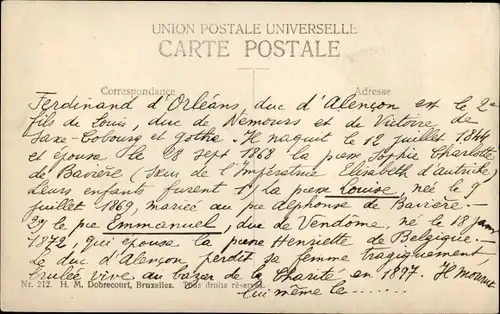 UNION POSTALE UNIVERSELLE
CARTE POSTALE
Correspondance Adresse
Ferdinand d'Orléans, duc d'Alençon est le 2e
fils de Louis, duc de Nemours et de Victoire de
Saxe-Cobourg et Gotha. Il naquit le 12 juillet 1844
et épouse le 28 sept 1868 la pcesse Sophie Charlotte
de Bavière (sœur de l'Impératrice Elisabeth d'Autriche)
Leurs enfants furent 1) la pcesse Louise, née le 9
juillet 1869, mariée au pce Alphonse de Bavière.-
2) le pce Emmanuel, duc de Vendôme, né le 18 janv
1872, qui épousa la pcesse Henriette de Belgique.-
Le duc d'Alençon perdit sa femme tragiquement
brulée vive au bazar de la Charité en 1897. Il mourut
Nr. 212. H. M. Dobrecourt, Bruxelles. Tous droits réservés.
lui même le ........